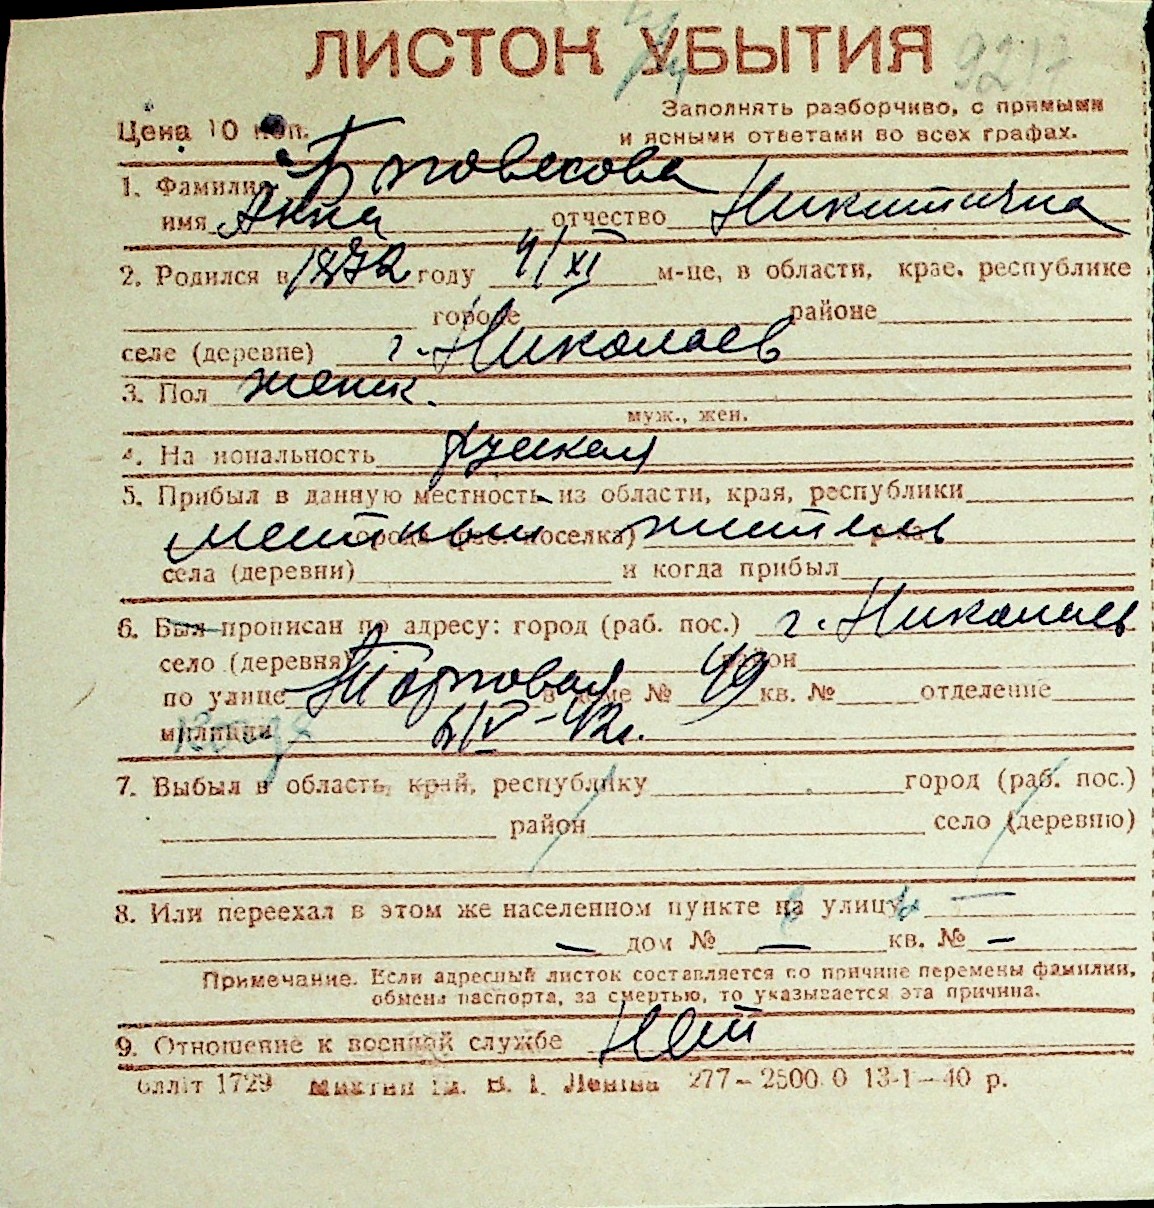 ЛИСТОК УБЫТИЯ
9217
Заполнять разборчиво, с прямыми
Цена 10 коп.
и ясными ответами во всех графах.
1. Фамилия
имя Анна отчество Никитична
2. Родился в 1872 году 4/XI м-це, в области, крае, республике
городе районе
селе (деревне) г. Николаев
3. Пол женск.
муж., жен.
4. Национальность русская
5. Прибыл в данную местность из области, края, республики
местный города (раб. поселка) житель
села (деревни) и когда прибыл
6. Был прописан по адресу: город (раб. пос.) г. Николаев
село (деревня) район
по улице Торговая в доме № 49 кв. № отделение
милиции 6/IV-42г.
7. Выбыл в область, край, республику город (раб. пос.)
район село (деревню)
8. Или переехал в этом же населенном пункте на улицу —
— дом № — кв. № —
Примечание. Если адресный листок составляется по причине перемены фамилии,
обмена паспорта, за смертью, то указывается эта причина.
9. Отношение к военной службе Нет
1729 В. І. Леніна 277—2500.0 13-1—40 р.